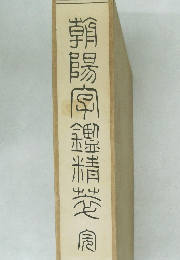 朝陽字鑑精萃